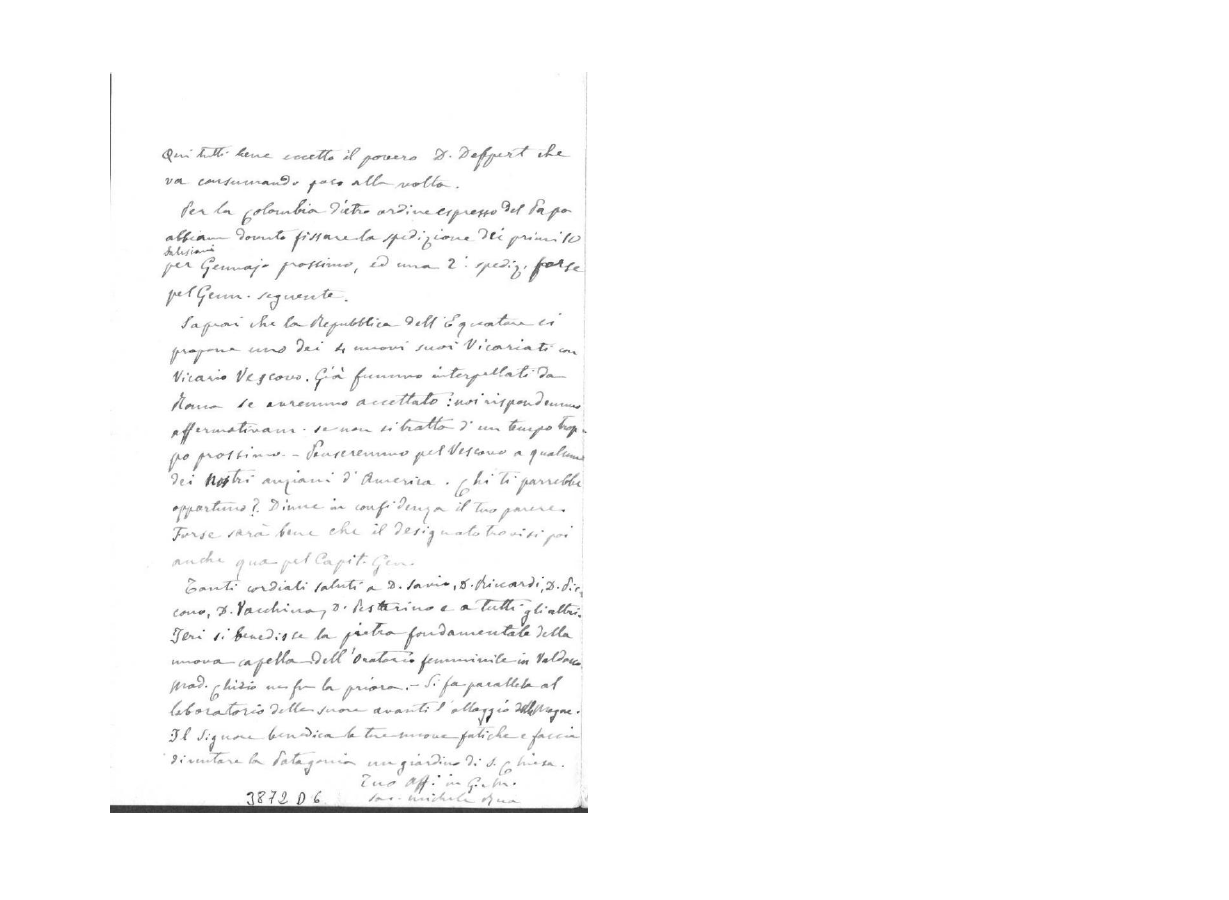 Qui tutti bene eccetto il povero D. Deppert che
va consumando poco alla volta.
Per la Colombia dietro ordine espresso del Papa
abbiam dovuto fissare la spedizione dei primi 10
Salesiani
per Gennajo prossimo, ed una 2ª spediz. forse
pel Genn. seguente.
Saprai che la Repubblica dell'Equatore ci
propone uno dei 4 nuovi suoi Vicariati con
Vicario Vescovo. Già fummo interpellati da
Roma se avremmo accettato: noi rispondemmo
affermativam. se non si tratta d'un tempo trop-
po prossimo. - Penseremmo pel Vescovo a qualcuno
dei nostri anziani d'America. Chi ti parrebbe
opportuno? Dimmi in confidenza il tuo parere.
Forse sarà bene che il designato trovisi poi
anche qua pel Capit. Gen.
Tanti cordiali saluti a D. Savio, D. Riccardi, D. Pic-
cono, D. Vacchina, D. Pestarino e a tutti gli altri.
Jeri si benedisse la pietra fondamentale della
nuova capella dell'Oratorio femminile in Valdocco
Mad. Ghiglio ne fu la priora. - Si fa parallela al
laboratorio delle suore avanti l'alloggio delle
Il Signore benedica le tue nuove fatiche e faccia
diventare la Patagonia un giardino di S. Chiesa.
Tuo Aff. in G. e M.
Sac. Michele Rua
3872 D 6